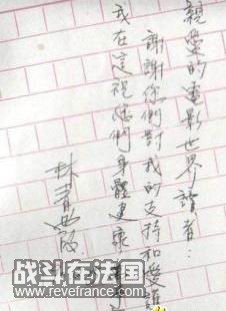 親愛的電影世界讀者：
謝謝你們對我的支持和愛護
我在這祝您們身體健康
林青霞
战斗在法国
www.revefrance.com